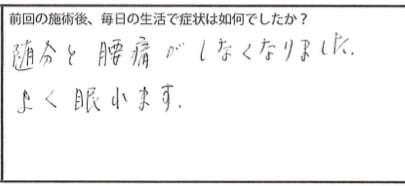 前回の施術後、毎日の生活で症状は如何でしたか？
随分と腰痛がしなくなりました.
よく眠れます.